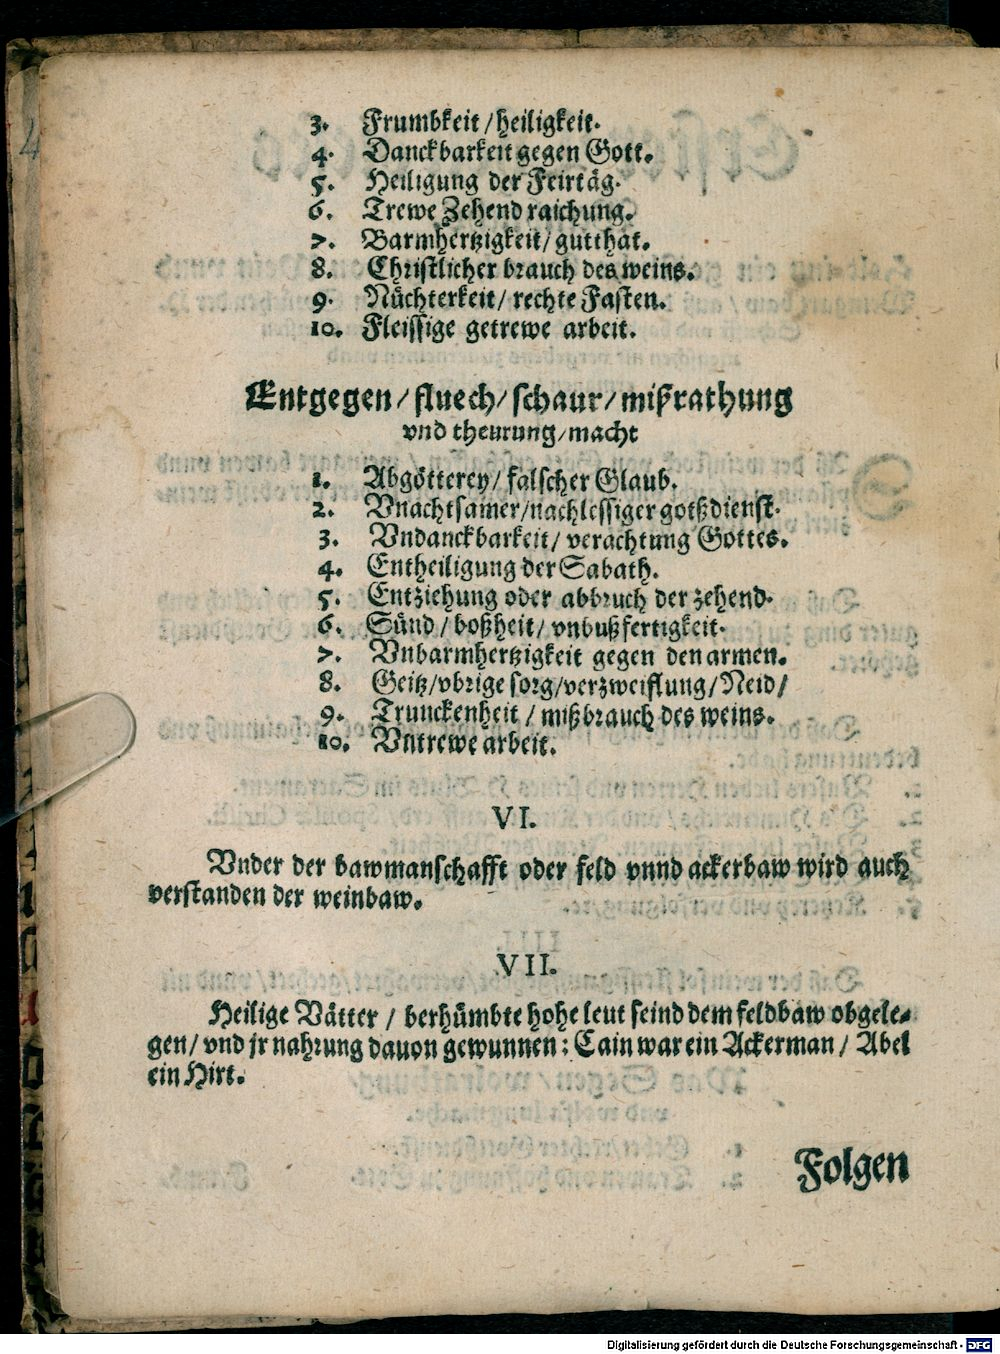 3. Frumbkeit / heiligkeit.
4. Danckbarkeit gegen Gott.
5. Heiligung der Feirtäg.
6. Trewe Zehend raichung.
7. Barmhertzigkeit / gutthat.
8. Christlicher brauch des weins.
9. Nüchterkeit / rechte Fasten.
10. Fleissige getrewe arbeit.
Entgegen / fluech / schaur / mißrathung
vnd theurung / macht
1. Abgötterey / falscher Glaub.
2. Vnachtsamer / nachlessiger gotßdienst.
3. Vndanckbarkeit / verachtung Gottes.
4. Entheiligung der Sabath.
5. Entziehung oder abbruch der zehend.
6. Sünd / boßheit / vnbußfertigkeit.
7. Vnbarmhertzigkeit gegen den armen.
8. Geitz / vbrige sorg / verzweiflung / Neid /
9. Trunckenheit / mißbrauch des weins.
10. Vntrewe arbeit.
VI.
Vnder der bawmanschafft oder feld vnnd ackerbaw wird auch
verstanden der weinbaw.
VII.
Heilige Vätter / berhümbte hohe leut seind dem feldbaw obgele-
gen / vnd jr nahrung dauon gewunnen: Cain war ein Ackerman / Abel
ein Hirt.
Folgen
Digitalisierung gefördert durch die Deutsche Forschungsgemeinschaft - DFG